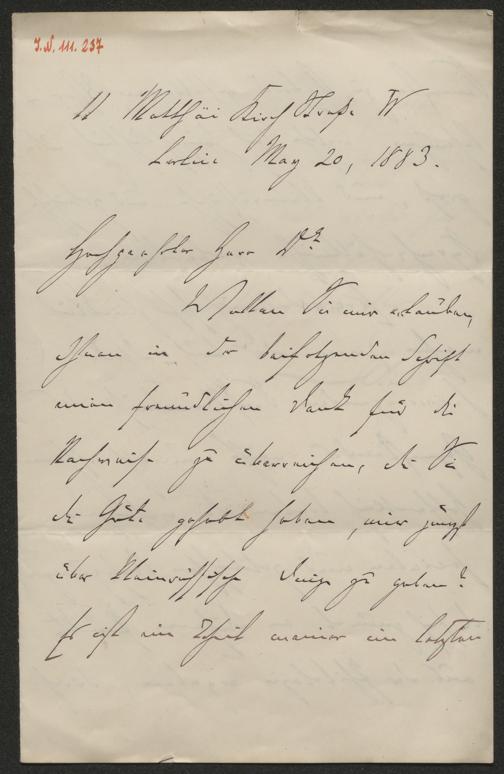 J.N. 111. 237
11 Matthäi Kirch Straße W
Berlin May 20, 1883.
Hochgeehrter Herr Dr
Wollen Sie mir erlauben,
Ihnen in der beifolgenden Schrift
meinen freundlichen Dank für die
Nachweise zu überreichen, die Sie
die Güte gehabt haben, mir jüngst
über Kleinrussische Dinge zu geben?
Es ist ein Theil meiner im letzten